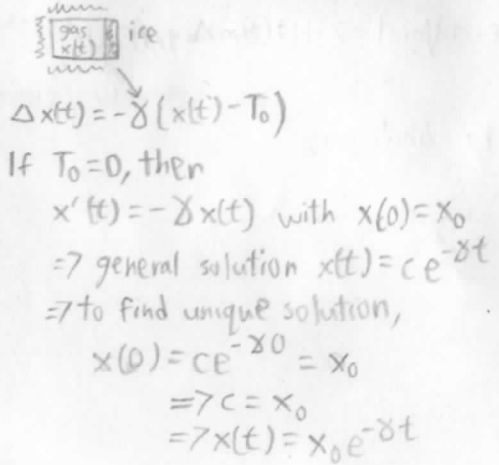 gas x(t) ice
Δx(t) = -γ(x(t) - T₀)
If T₀ = 0, then
x'(t) = -γx(t) with x(0) = x₀
=> general solution x(t) = ce^{-γt}
=> to find unique solution,
x(0) = ce^{-γ0} = x₀
=> c = x₀
=> x(t) = x₀e^{-γt}